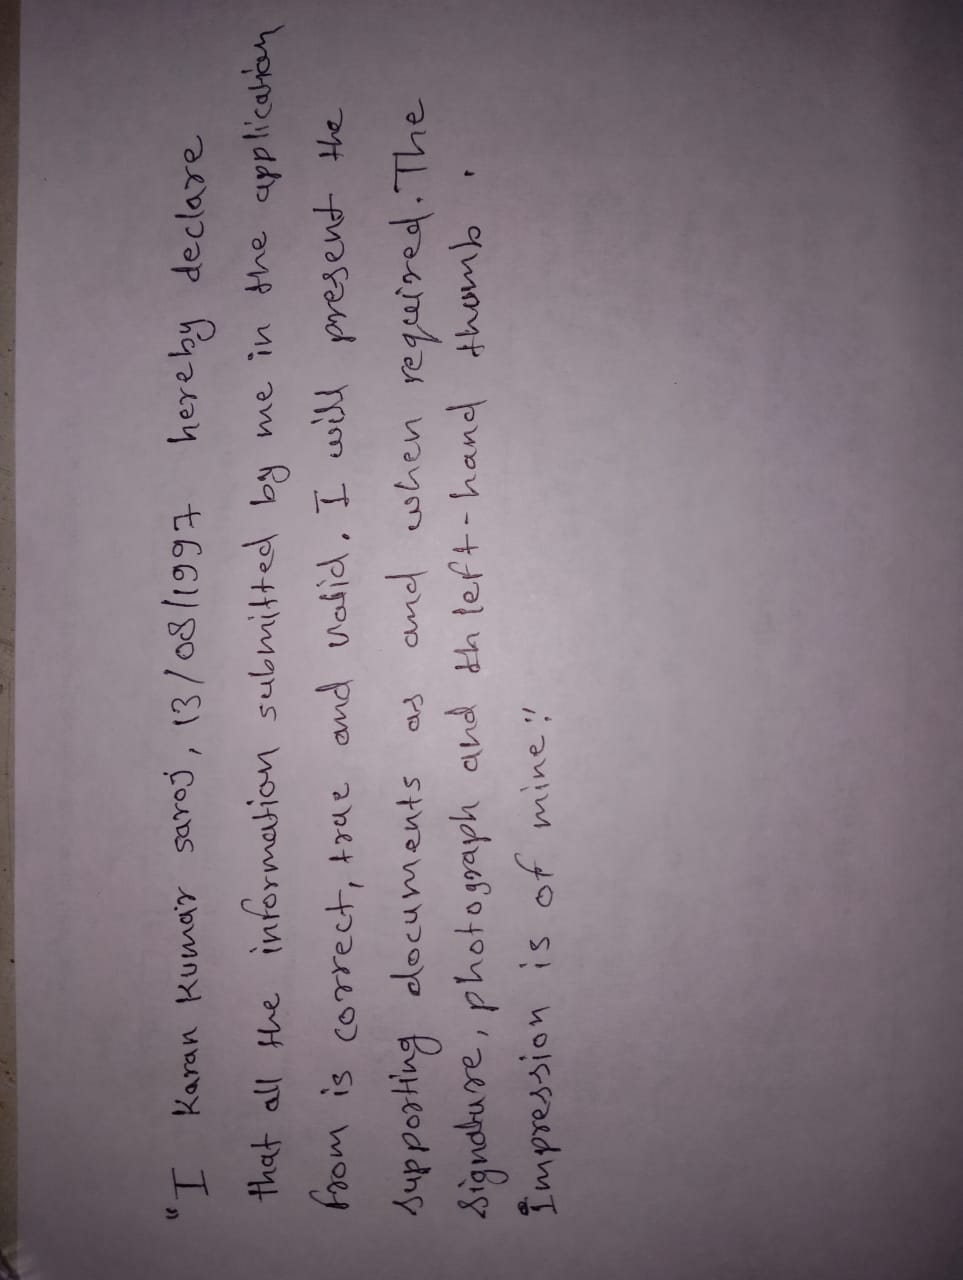 "I Karan Kumar saroj, 13/08/1997 hereby declare
that all the information submitted by me in the application
from is correct, true and valid. I will present the
supporting documents as and when required. The
Signature, photograph and th left-hand thumb.
Impression is of mine."